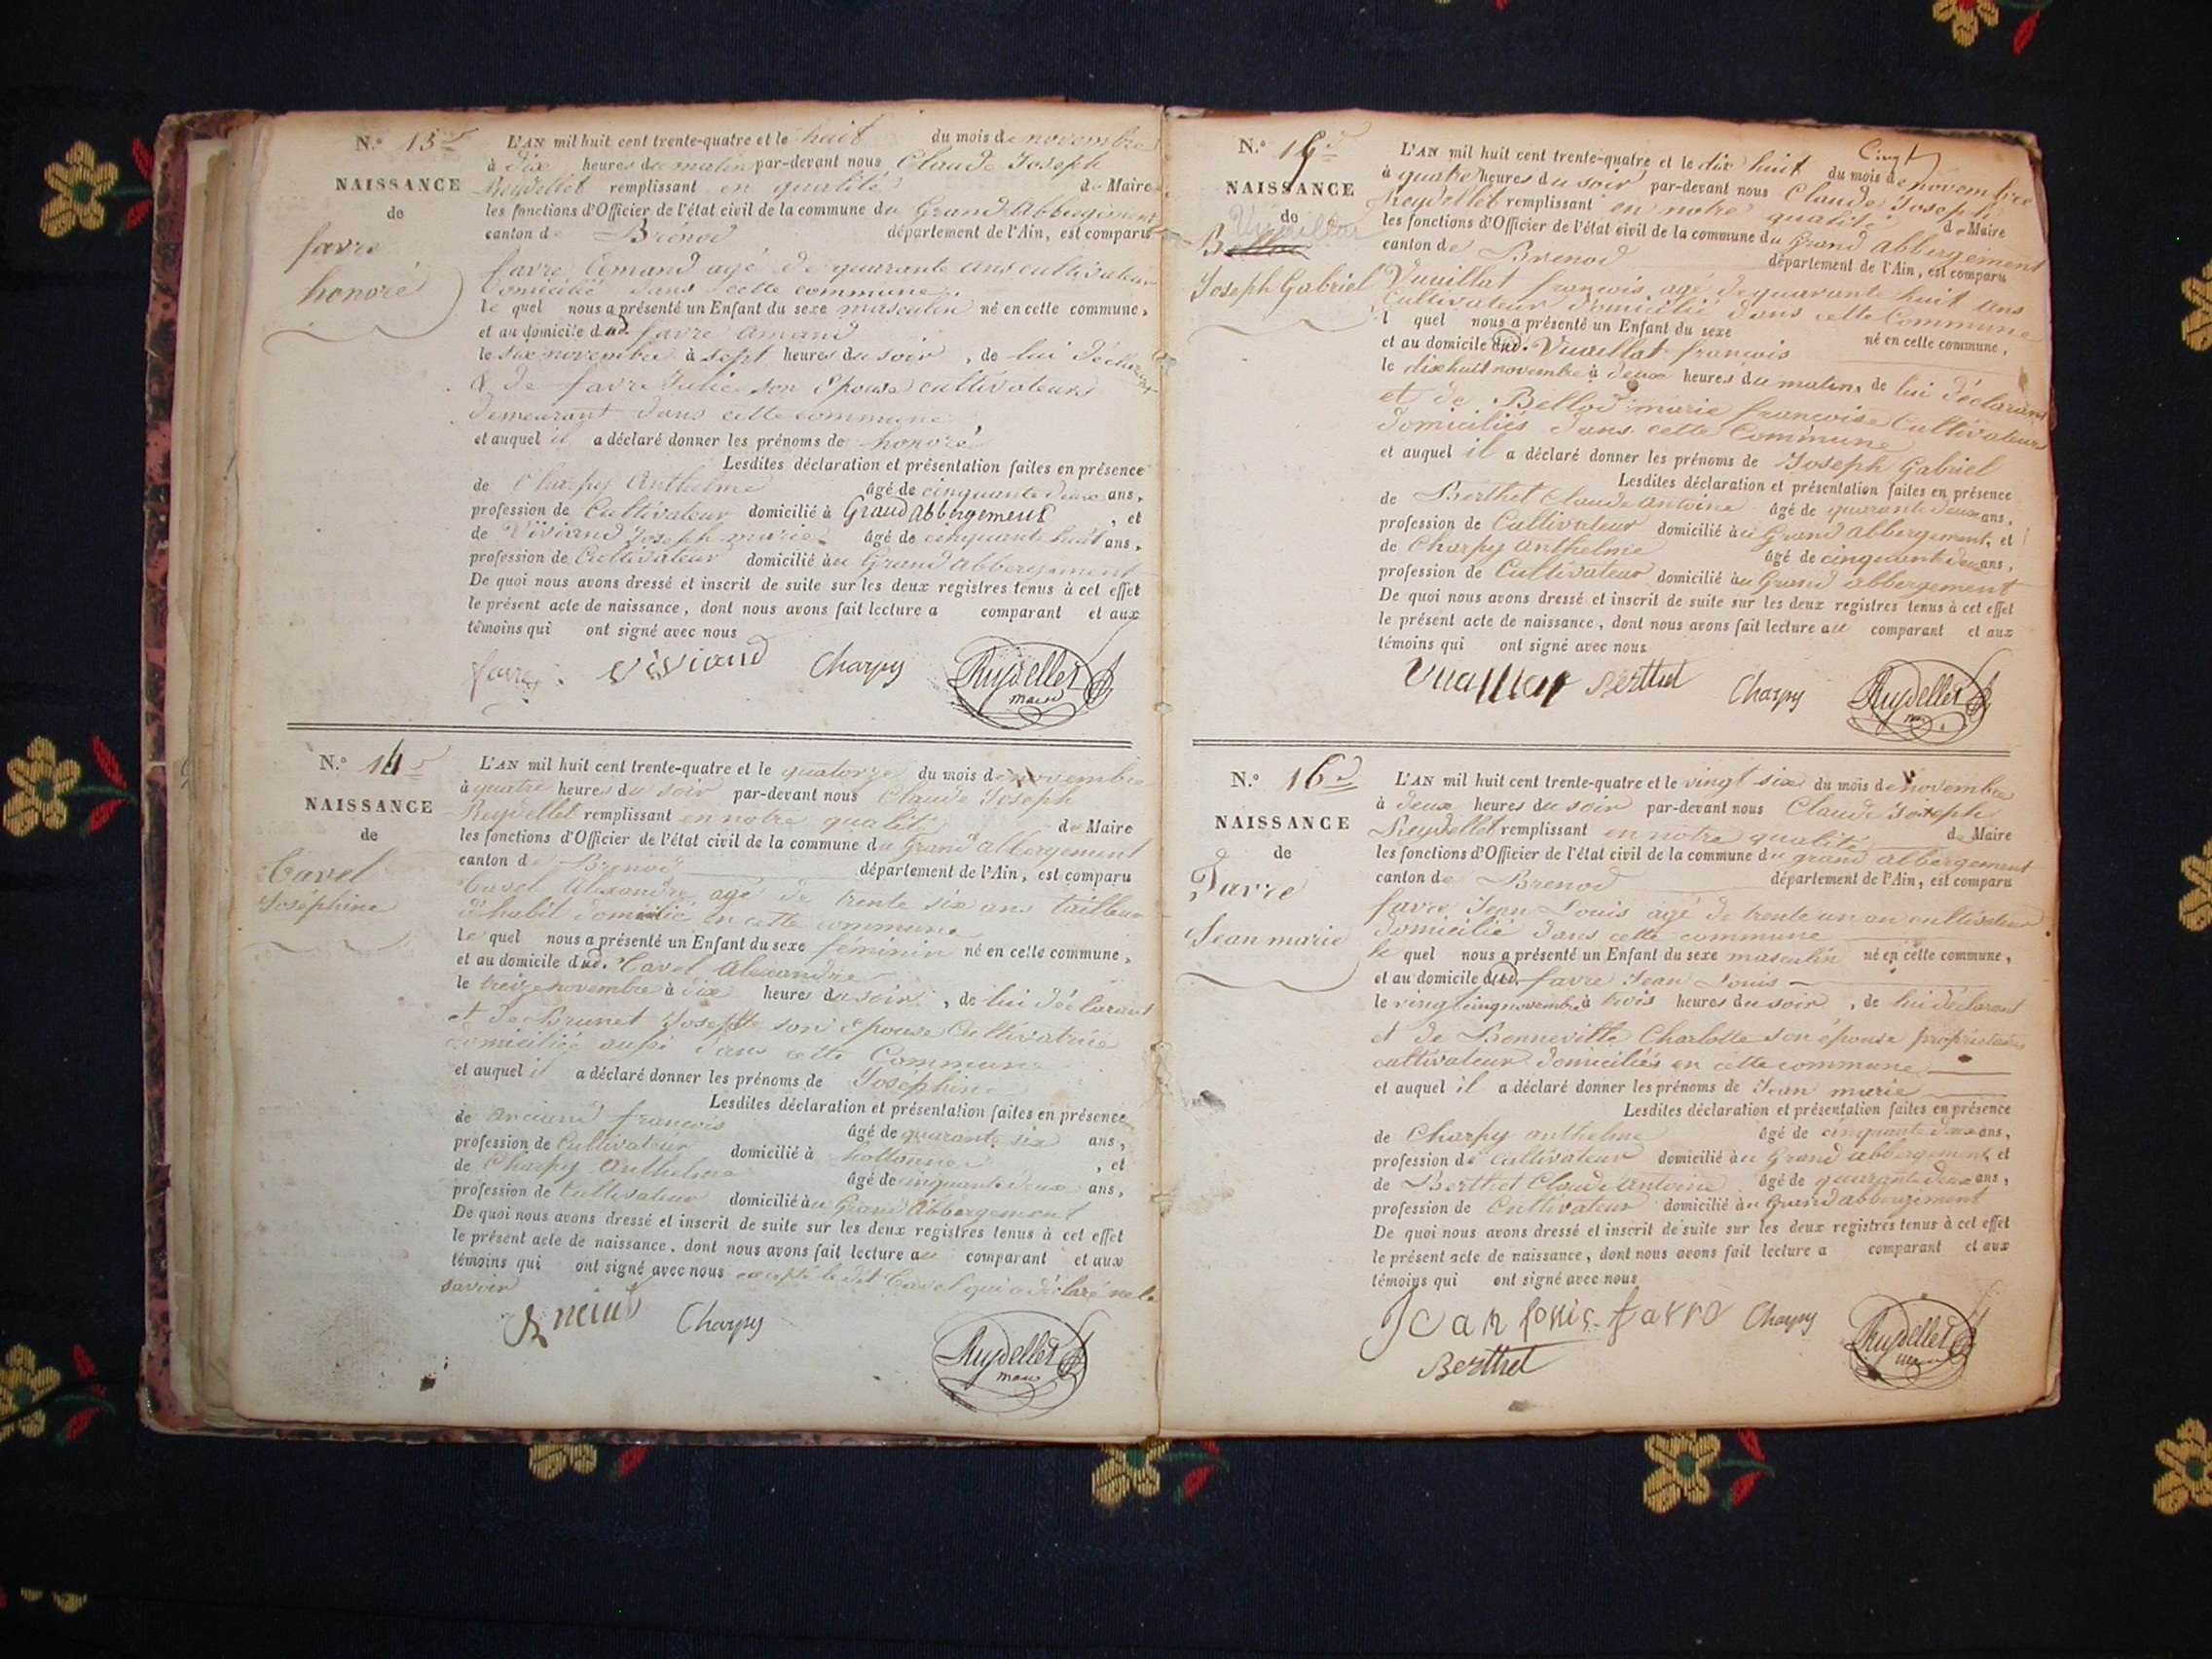 N.º 13
NAISSANCE
de
favre
honoré
L'AN mil huit cent trente-quatre et le huit du mois de novembre
à dix heures du matin par-devant nous Claude Joseph
Reydellet remplissant en qualité de Maire
les fonctions d'Officier de l'état civil de la commune du Grand Abbergement
canton de Brenod département de l'Ain, est comparu
favre Amand agé de quarante ans cultivateur
domicilié dans cette commune
le quel nous a présenté un Enfant du sexe masculin né en cette commune,
et au domicile dud. favre amand
le six novembre à sept heures du soir, de lui déclarant
& de favre Julie son épouse cultivateurs
demeurant dans cette commune
et auquel il a déclaré donner les prénoms de honoré
Lesdites déclaration et présentation faites en présence
de Charpy Anthelme âgé de cinquante deux ans,
profession de Cultivateur domicilié à Grand Abbergement, et
de Viviand Joseph marie âgé de cinquante huit ans,
profession de Cultivateur domicilié au Grand Abbergement
De quoi nous avons dressé et inscrit de suite sur les deux registres tenus à cet effet
le présent acte de naissance, dont nous avons fait lecture a comparant et aux
témoins qui ont signé avec nous
favre viviand Charpy Reydellet
maire
N.º 14
NAISSANCE
de
Cavel
Joséphine
L'AN mil huit cent trente-quatre et le quatorze du mois de novembre
à quatre heures du soir par-devant nous Claude Joseph
Reydellet remplissant en notre qualité de Maire
les fonctions d'Officier de l'état civil de la commune du Grand Abbergement
canton de Brenod département de l'Ain, est comparu
Cavel Alexandre agé de trente six ans tailleur
d'habit domicilié en cette commune
le quel nous a présenté un Enfant du sexe féminin né en cette commune,
et au domicile dud. Cavel Alexandre
le treize novembre à dix heures du soir, de lui déclarant
et de Brunet Josephte son épouse Cultivatrice
domiciliée aussi dans cette Commune
et auquel il a déclaré donner les prénoms de Joséphine
Lesdites déclaration et présentation faites en présence
de anciand francois âgé de quarante six ans,
profession de Cultivateur domicilié à hottonnes, et
de Charpy Anthelme âgé de cinquante deux ans,
profession de Cultivateur domicilié au Grand Abbergement
De quoi nous avons dressé et inscrit de suite sur les deux registres tenus à cet effet
le présent acte de naissance, dont nous avons fait lecture au comparant et aux
témoins qui ont signé avec nous excepté le dit Cavel qui a déclaré ne le
savoir
Charpy Reydellet
maire
N.º 15
NAISSANCE
de
Vuaillat
Joseph Gabriel
Cinq
L'AN mil huit cent trente-quatre et le dix huit du mois de novembre
à quatre heures du soir par-devant nous Claude Joseph
Reydellet remplissant en notre qualité de Maire
les fonctions d'Officier de l'état civil de la commune du Grand Abbergement
canton de Brenod département de l'Ain, est comparu
Vuaillat francois agé de quarante huit ans
Cultivateur domicilié dans cette Commune
l quel nous a présenté un Enfant du sexe né en cette commune,
et au domicile dud. Vuaillat francois
le dix huit novembre à deux heures du matin, de lui déclarant
et de Bellod marie francoise Cultivateurs
domiciliés dans cette Commune
et auquel il a déclaré donner les prénoms de Joseph Gabriel
Lesdites déclaration et présentation faites en présence
de Berthet Claude Antoine âgé de quarante deux ans,
profession de Cultivateur domicilié au Grand Abbergement, et
de Charpy Anthelme âgé de cinquante deux ans,
profession de Cultivateur domicilié au Grand abbergement
De quoi nous avons dressé et inscrit de suite sur les deux registres tenus à cet effet
le présent acte de naissance, dont nous avons fait lecture au comparant et aux
témoins qui ont signé avec nous
Vuaillat Berthet Charpy Reydellet
N.º 16
NAISSANCE
de
Favre
Jean marie
L'AN mil huit cent trente-quatre et le vingt six du mois de Novembre
à deux heures du soir par-devant nous Claude Joseph
Reydellet remplissant en notre qualité de Maire
les fonctions d'Officier de l'état civil de la commune du grand abbergement
canton de Brenod département de l'Ain, est comparu
favre Jean Louis agé de trente un an cultivateur
domicilié dans cette commune
le quel nous a présenté un Enfant du sexe masculin né en cette commune,
et au domicile dud. favre Jean Louis
le vingt cinq novembre à trois heures du soir, de lui déclarant
et de Bonneville Charlotte son épouse propriétaires
cultivateur domiciliés en cette commune
et auquel il a déclaré donner les prénoms de Jean marie
Lesdites déclaration et présentation faites en présence
de Charpy anthelme âgé de cinquante deux ans,
profession de cultivateur domicilié au Grand abbergement, et
de Berthet Claude Antoine âgé de quarante deux ans,
profession de Cultivateur domicilié au Grand abbergement
De quoi nous avons dressé et inscrit de suite sur les deux registres tenus à cet effet
le présent acte de naissance, dont nous avons fait lecture a comparant et aux
témoins qui ont signé avec nous
Jean Louis favre Charpy Reydellet
Berthet